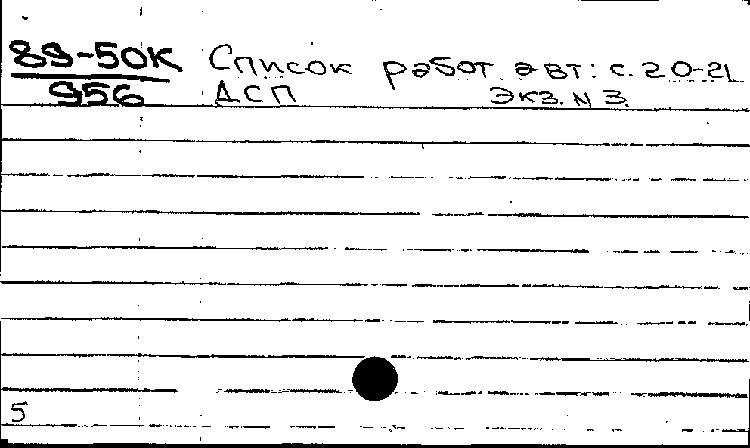 89-50К Список работ авт: с. 20-21
956 ДСП Экз. N 3.
5